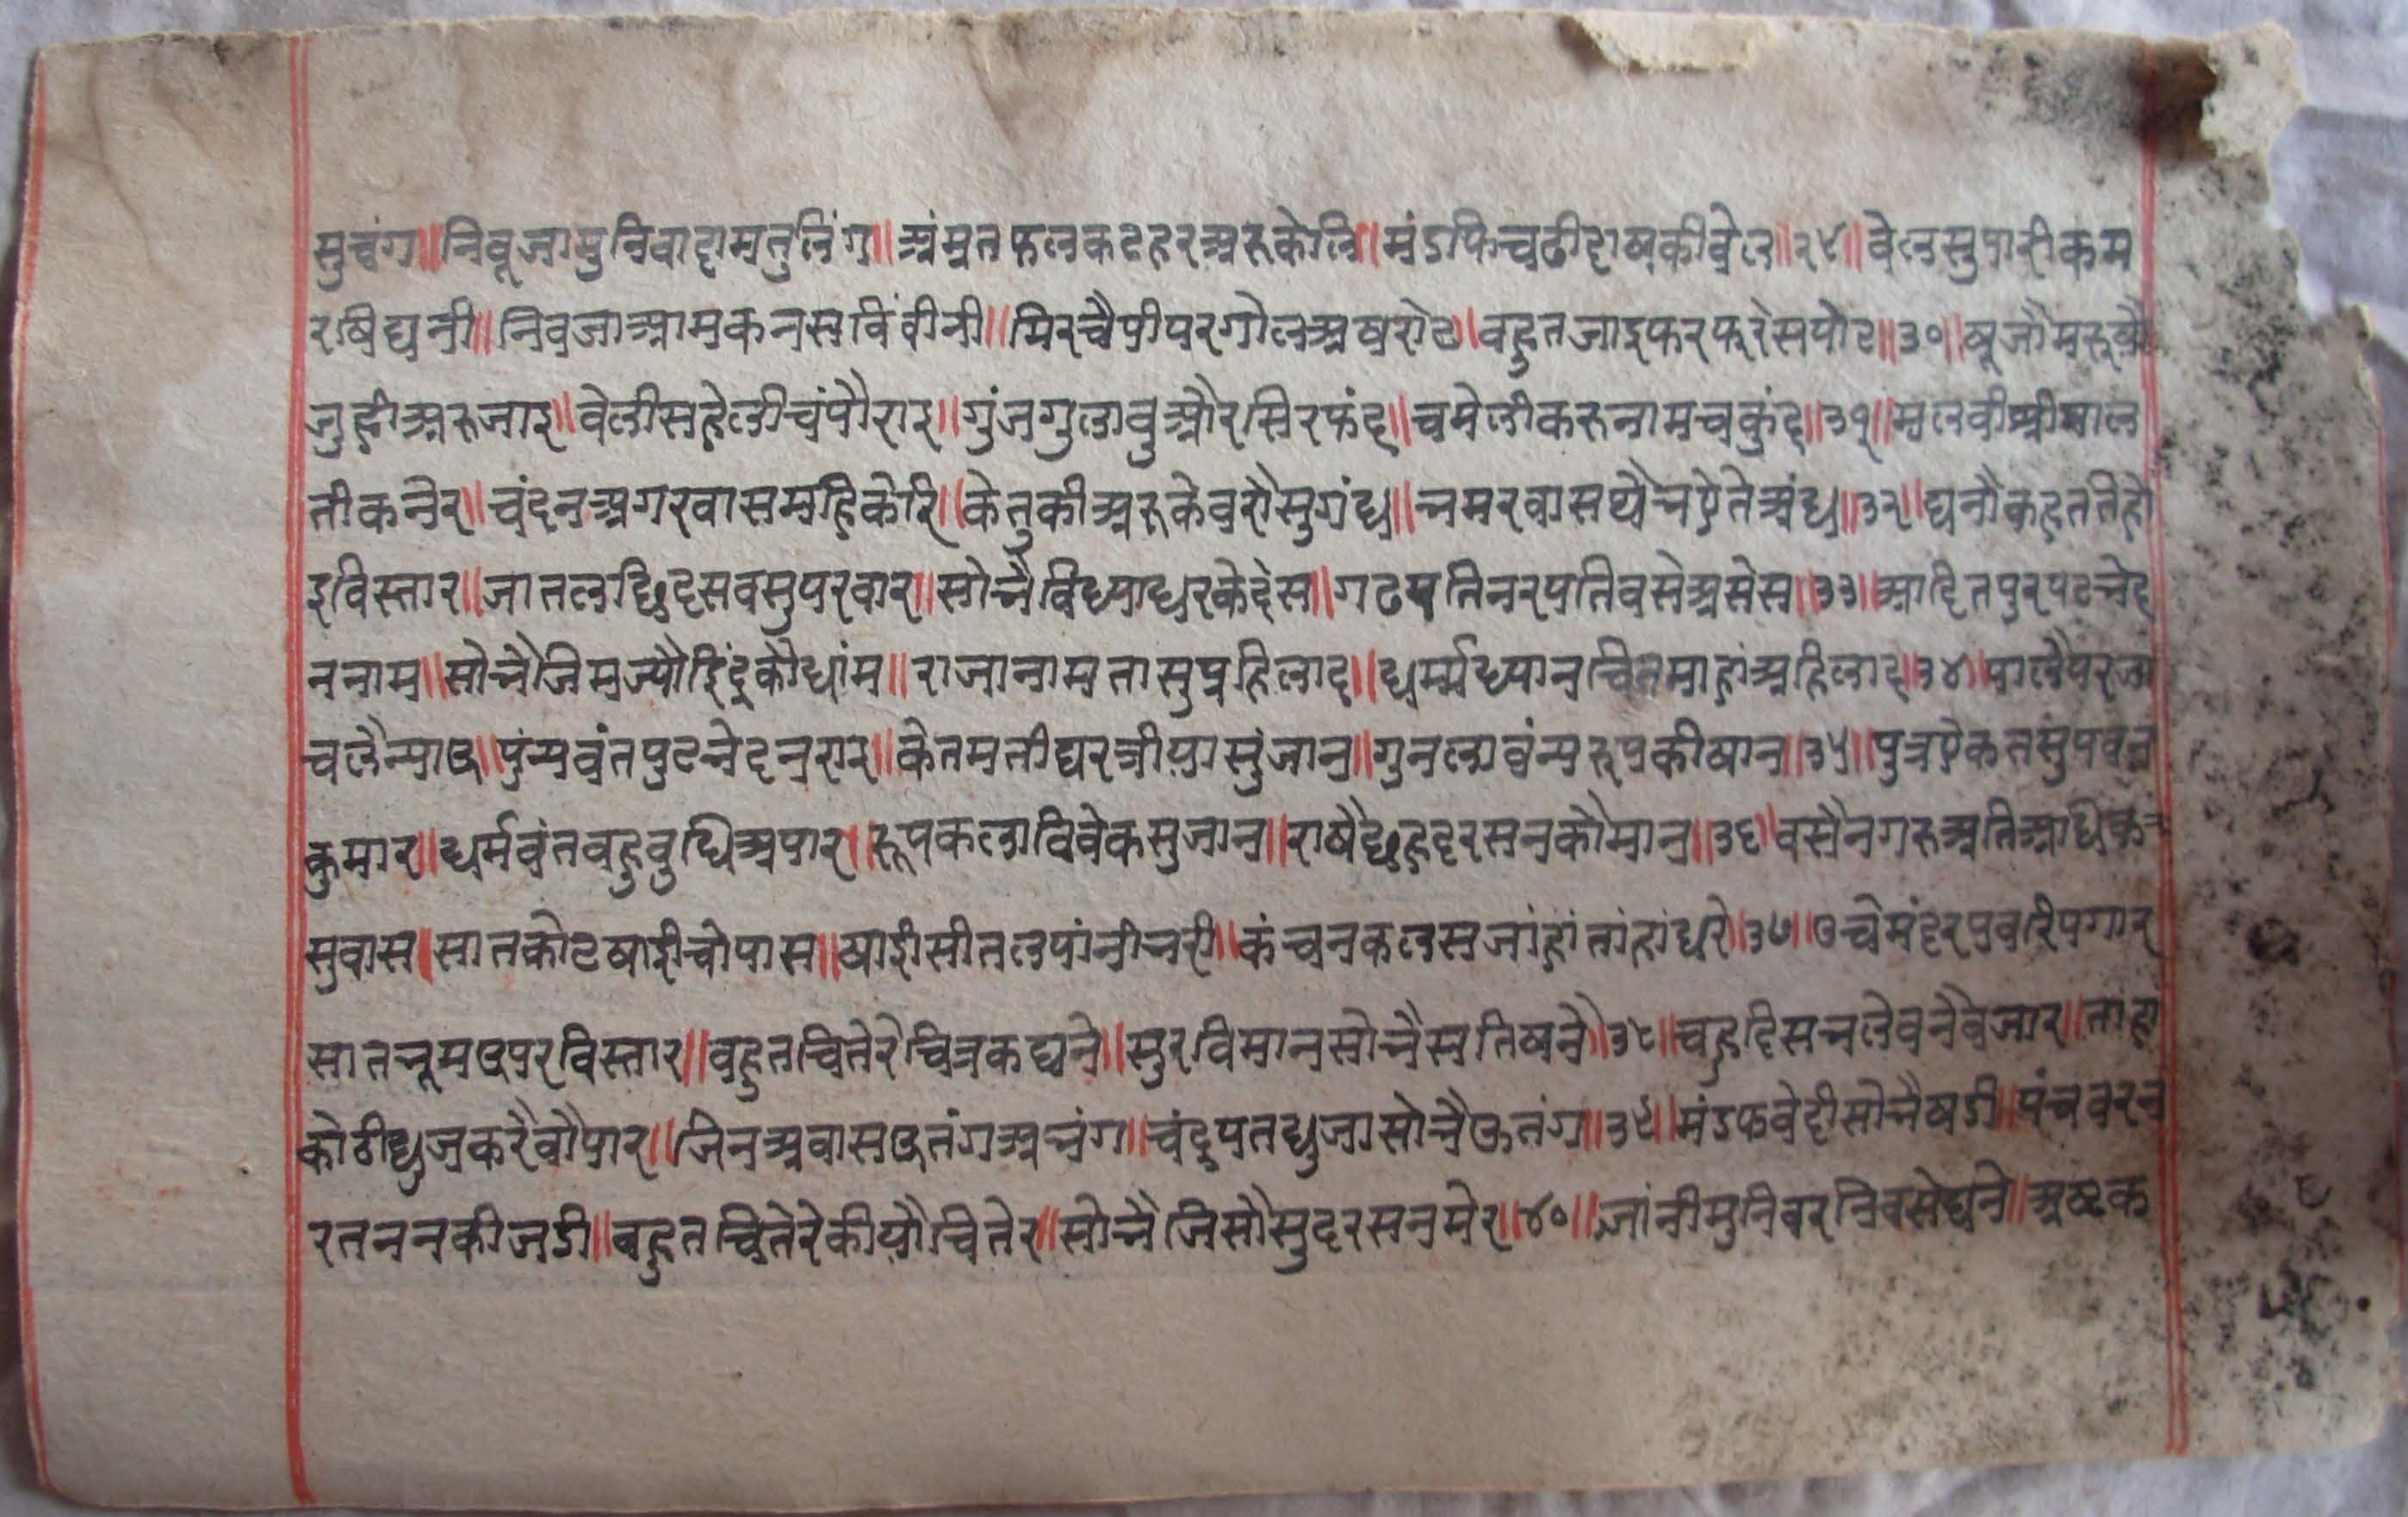 सुचंग॥ निवूजासुनिवादामतुलिंग॥ अंमृतफलकटहरअरुकेलि॥ मंडफिचढीदाषकीवेल॥२९॥ वेलसुपारीकम
रषिघनी॥ निवजाआमकनसविंवीनी॥ मिरचैपीपरगोलअषरोट॥ वहुतजाइफरफरेसपोट॥३०॥ षूजौमरुवौ
जुहीअरुजाइ॥ वेलीसहेलीचंपौराइ॥ गुंजगुलावुऔरसिरफंद॥ चमेलीकरुनामचकुंद॥३१॥ मलवीश्रीमाल
तीकनेर॥ चंदनअगरवासमहिकेरि॥ केतुकीअरुकेवरौसुगंध॥ भमरवासथैभऐतेअंध॥३२॥ घनौकहततिहौ
इविस्तार॥ जातलछिदसवसुपरवार॥ सोभैविद्याधरकेदेस॥ गढपतिनरपतिवसेअसेस॥३३॥ आदितपुरपटभेद
ननाम॥ सोभैजिमज्यौइिंदुकौधांम॥ राजानामतासुप्रहिलाद॥ धर्म्मध्यानचितमाहांअहिलाद॥३४॥ पालैपरजा
चलैन्याउ॥ पुंन्यवंतपुटभेदनराइ॥ केतमतीघरत्रीयासुंजान॥ गुनलावंन्यरुपकीषान॥३५॥ पुत्रऐकतसुंपवन
कुमार॥ धर्मवंतवहुवुधिअपार॥ रूपकलाविवेकसुजान॥ राषैछहदरसनकौमान॥३६॥ वसैनगरुअतिअधिक
सुवास॥ सातकोटषाईचोपास॥ षाईसीतलपांनीभरी॥ कंचनकलसजांहांतांहांधरे॥३७॥ उचेमंदरपवरिपगार
सातभूमउपरविस्तार॥ वहुतचितेरेचित्रकघने॥ सुरविमानसोभैसतिषनै॥३८॥ चहुदिसभलेवनेवजार॥ तांहां
कोठीधुजकरैवौपार॥ जिनअवासउतंगअभंग॥ चंदुपतधुजासोभैउतंग॥३९॥ मंडफवेदीसोभैषडी॥ पंचवरन
रतननकीजडी॥ वहुतचितेरेकीयौचितेर॥ सोभैजिसौसुदरसनमेर॥४०॥ जांनीमुनिवरनिवसेघने॥ अष्टक